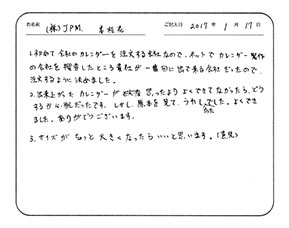 お名前 (株)JPM. 李桂花 ご記入日 2017年1月17日
1.初めて会社のカレンダーを注文する会社なので、ネットでカレンダー製作
の会社を検索したところ貴社が一番初に出て来る会社だったので、
注文するように決めました。
2.出来上がったカレンダーが 思ったより よくできてなかったら、どう
するか心配だったです。しかし、原本を見て、うれしでした。よくでき
かた
ました。ありがとうございます。
3.サイズが ちょっと 大きくなったら いいと思います。(意見)